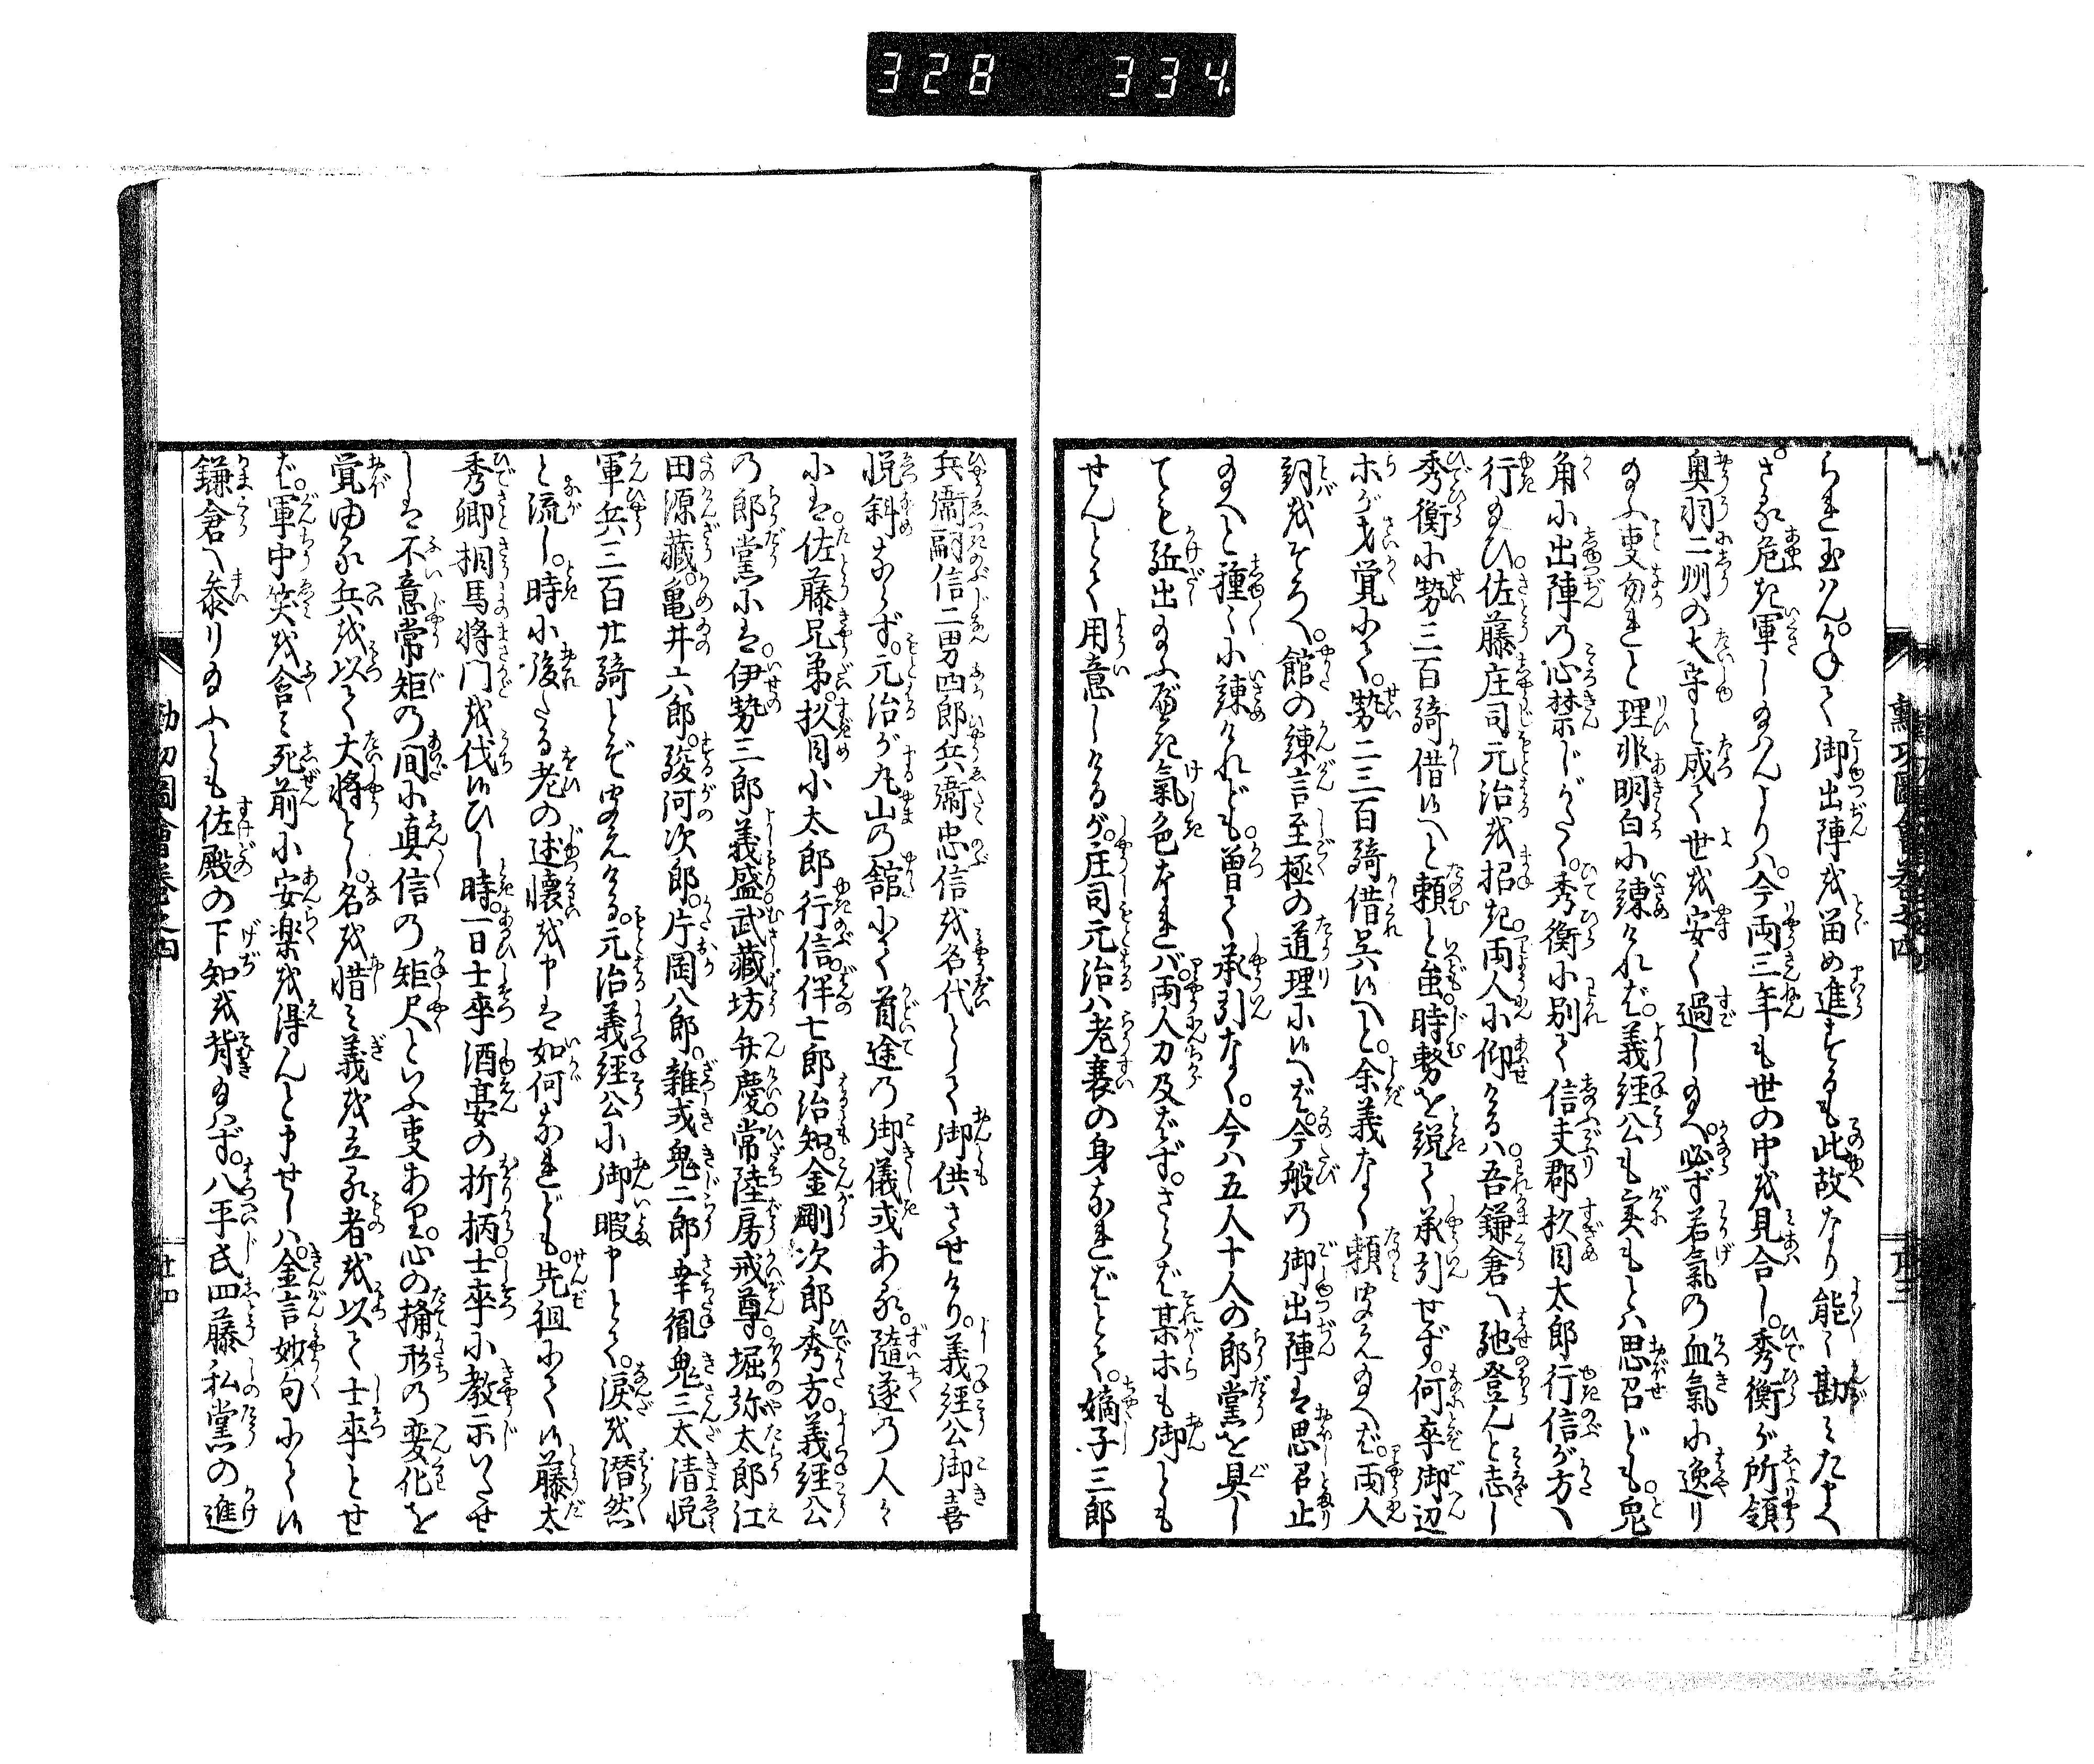 328 334
られ玉はん。かねて御出陣を留め進するも此故なり能々勘みたまへ
さる危き軍し玉はんよりハ。今両三年も世の中を見合し。秀衡が所領
奥羽二州の大守と成て世を安く過し玉へ。必ず若氣の血氣に逸り
玉ふ事勿れと理非明白に諫けれど。義經公も実もとハ思召ども。兎
角に出陣の心禁じがたく。秀衡に別て信夫郡杦目太郎行信が方へ
行玉ひ。佐藤庄司元治を招き両人に仰けるハ吾鎌倉へ馳登んと志し
秀衡に勢三百騎借候へと頼と虽時㔟を説て承引せず。何卒御辺
ホが才覚にて。勢二三百騎借呉候へと。余義なく頼聞え玉へば。両人
詞をそろへ。館の諫言至極の道理に候へば。今般の御出陣は思召止
玉へと種々に諫けれども曽て承引なく。今ハ五人十人の郎党を具し
ても延出玉ふべき氣色なれバ。両人力及ばず。さらば某ホも御とも
せんとて用意しけるが。庄司元治ハ老衰の身なればとて。嫡子三郎
兵衞嗣信二男四郎兵衞忠信を名代として御供させけり。義經公御喜
悦斜ならず。元治が丸山の舘にて首途の御儀式ある。隨遂の人々
には。佐藤兄弟。杦目小太郎行信。伴七郎治知。金剛次郎秀方。義經公
の郎党には。伊勢三郎義盛武藏坊弁慶常陸房戒尊。堀弥太郎江
田源藏。亀井六郎。駿河次郎。片岡八郎。雜式鬼二郎幸胤鬼三太清悦
軍兵三百廿騎とぞ聞えける。元治義經公に御暇申とて。涙を潸然
と流し。時に後たる老の述懐を申は如何なれども。先祖にて候藤太
秀卿相馬將门を伐候ひし時。一日士卒酒宴の折柄。士卒に教示いたせ
しは不意常矩の間に真信の矩尺といふ事あり。心の掃形の変化を
覚ゆる兵を以て大將とし。名を惜み義を立る者を以て士卒とせ
ば。軍中笑を含み死前に安楽を得んと申せしハ。金言妙句にて候
鎌倉へ参り玉ふとも佐殿の下知を背玉はず。八平氏四藤私党の進
勲功圖會巻之四
廿四